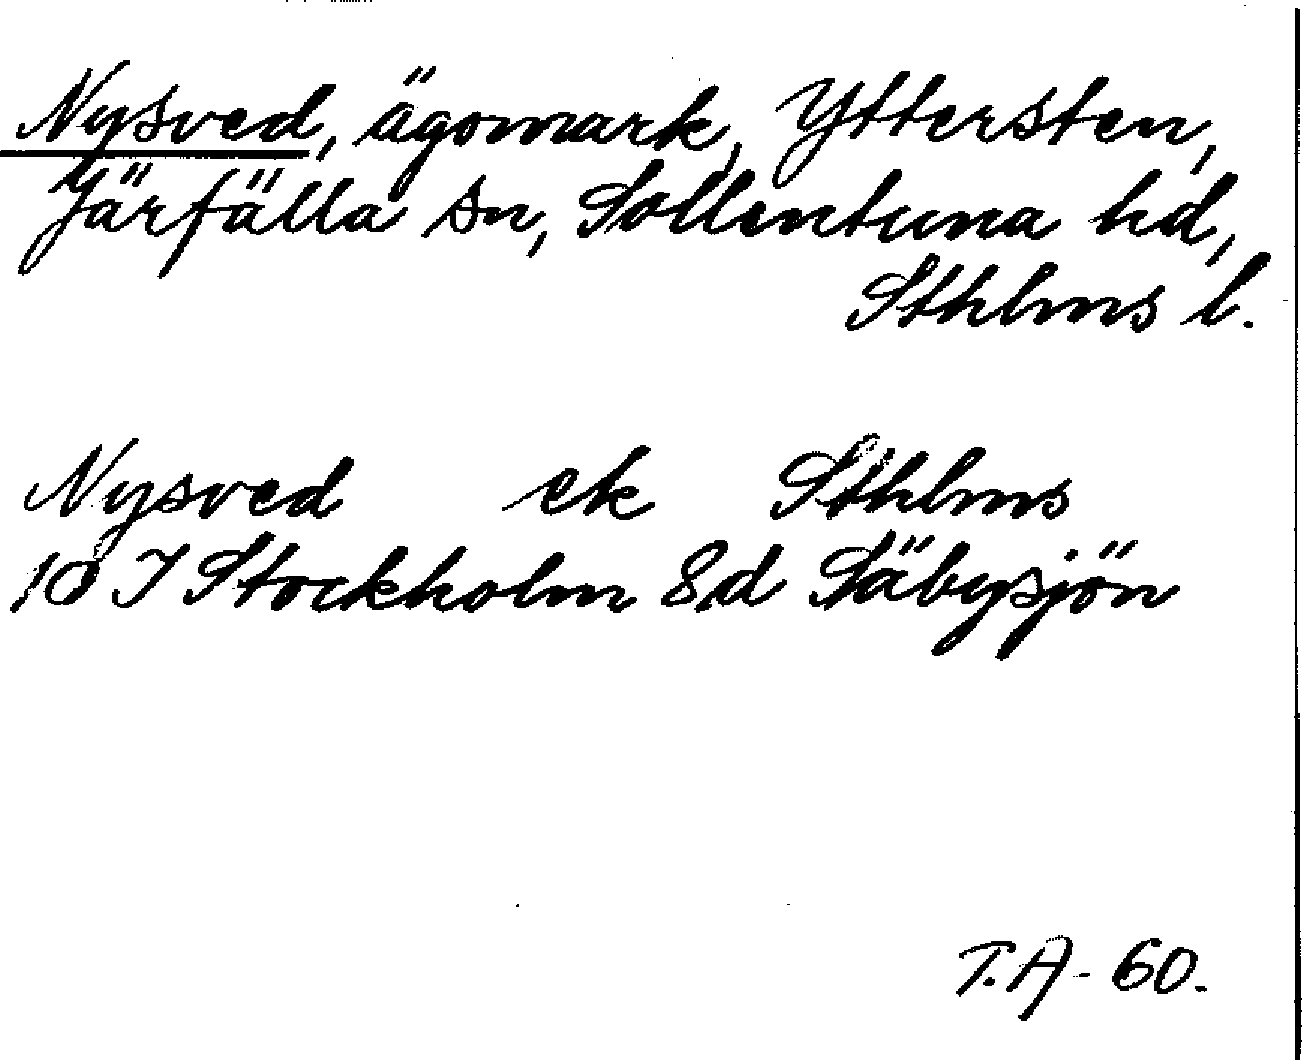 Nysved, ägomark, Yttersten,
Järfälla sn, Sollentuna hd,
Sthlms l.
Nysved ek Sthlms
10 I Stockholm 8d Säbysjön
T.A-60.